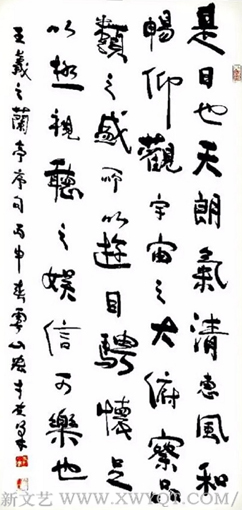 是日也天朗氣清惠風和
暢仰觀宇宙之大俯察品
類之盛所以遊目騁懷足
以極視聽之娛信可樂也
王羲之蘭亭序句丙申
新文艺 / WWW.XWYQT.COM/